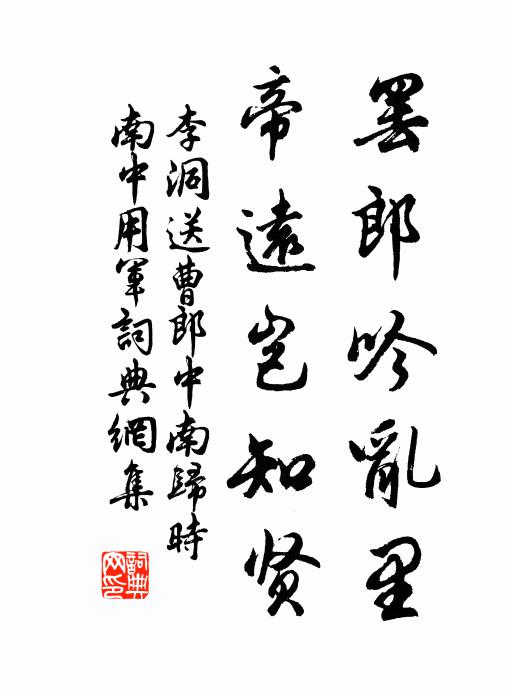 罢郎吟亂里
帝遠岂知贤
李洞送曹郎中南歸時
南中用軍詞典網集
詞典
网印